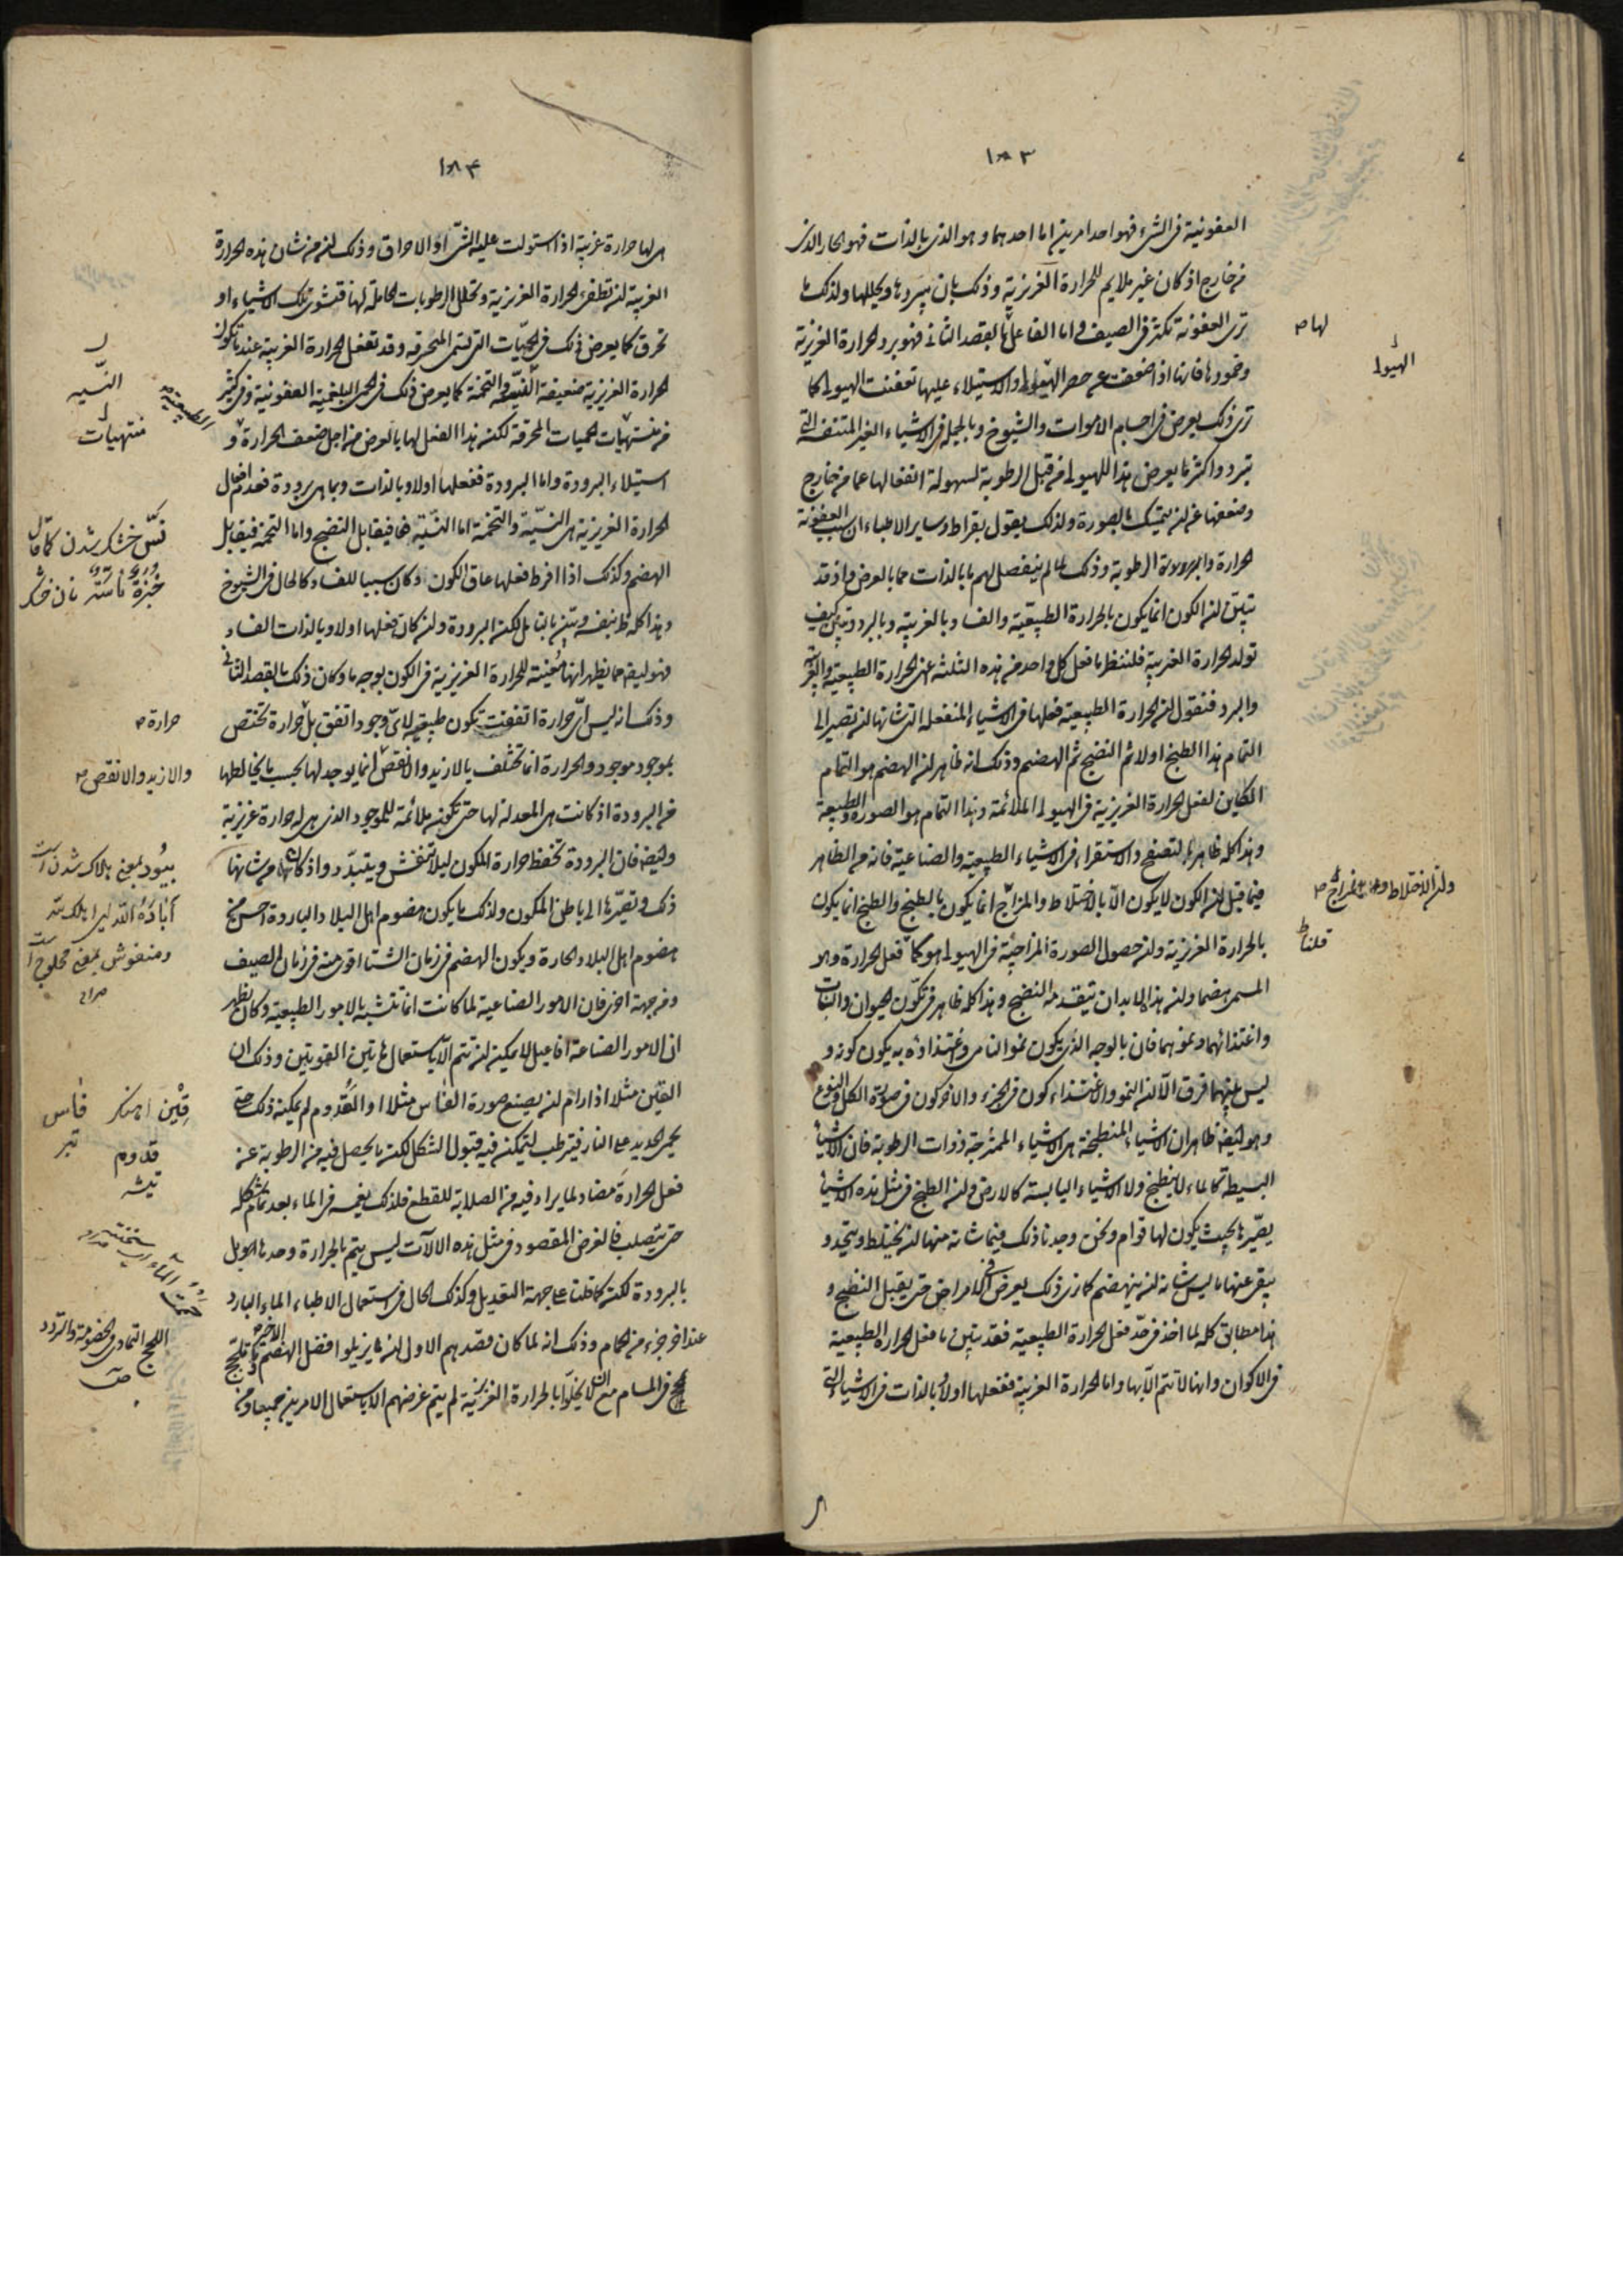 ١٨٣
العفونية فى الشىء فهو احد امرين اما احدهما وهو الذى بالذات فهو الحار الذى
من خارج اذ كان غير ملايم للحرارة الغريزية وذلك بان يبردها ويحللها ولذلك ما
ترى العفونة تكثر فى الصيف واما الفاعل لها بالقصد الثانى فهو برد الحرارة الغريزية
وخمودها فانها اذا ضعفت عن حصر الهيولى والاستيلاء عليها تعفنت الهيولى كما
ترى ذلك يعرض فى اجسام الاموات والشيوخ وبالجملة فى الاشياء الغير المتنفسة التى
تبرد واكثر ما يعرض هذا للهيولى من قبل الرطوبة لسهولة انفعالها عما من خارج
وضعفها عن ان يتمسك بالصورة ولذلك يقول بقراط وساير الاطباء ان سبب العفونة
الحرارة والرطوبة وذلك لما لم ينفصل لهم ما بالذات مما بالعرض واذ قد
تبين ان الكون انما يكون بالحرارة الطبيعية والفساد بالغريبة وبالبرد وتبين كيف
تولد الحرارة الغريبة فلننظر ما فعل كل واحد من هذه الثلثة اعنى الحرارة الطبيعية والغريبة
والبرد فنقول ان الحرارة الطبيعية فعلها فى الاشياء المنفعلة التى شانها ان تصير الى
التمام هذا الطبخ اولا ثم النضج ثم الهضم وذلك انه ظاهر ان الهضم هو التمام
الكاين لفعل الحرارة الغريزية فى الهيولى الملائمة وهذا التمام هو الصورة والطبيعة
وهذا كله ظاهر بالتصفح والاستقراء فى الاشياء الطبيعية والصناعية فانه من الظاهر
فيما قبل ان الكون لا يكون الا بالاختلاط والمزاج انما يكون بالطبخ والطبخ انما يكون
بالحرارة الغريزية وان حصول الصورة المزاجية فى الهيولى هو كمال فعل الحرارة وهو
المسمى هضما وان هذا لابد ان يتقدمه النضج وهذا كله ظاهر فى تكون الحيوان والنبات
واغتذائهما ونموهما فان بالوجه الذى يكون نمو النامى واغتذاؤه به يكون كونه و
ليس بينهما فرق الا ان النمو والاغتذاء كون فى الجزء والاخر كون فى صورة الكل والنوع
وهو ايضا ظاهر ان الاشياء المنطبخة هى الاشياء الممتزجة ذوات الرطوبة فان الاشياء
البسيطة كالماء لا ينطبخ ولا الاشياء اليابسة كالارض وان الطبخ فى مثل هذه الاشياء
يصيرها بحيث يكون لها قوام وثخن وجدنا ذلك فيما شانه منها ان يختلط ويتحد و
يبقى عنها ما ليس شانه ان ينهضم كما نرى ذلك يعرض فى الامراض حتى يقبل النضج و
هذا مطابق كله لما اخذ فى حد فعل الحرارة الطبيعية فقد تبين ما فعل الحرارة الطبيعية
فى الاكوان وانها لا تتم الا بها واما الحرارة الغريبة ففعلها اولا وبالذات فى الاشياء التى
لها ص
الهيولى
وان الاختلاط
قلنا
١٨٤
هى لها حرارة غريبة اذا استولت عليه الشىّ او الاحراق وذلك ان من شان هذه الحرارة
الغريبة ان تطفئ الحرارة الغريزية وتحلل الرطوبات الحاملة لها فتشوى تلك الاشياء او
تحرق كما يعرض ذلك فى الحميات التى تسمى المحرقة وقد تفعل الحرارة الغريبة عندما تكون
الحرارة الغريزية ضعيفة والتخمة كما يعرض ذلك فى الحمى البلغمية العفونية وفى كثير
من منتهيات الحميات المحرقة لكن هذا الفعل لها بالعرض من اجل ضعف الحرارة و
استيلاء البرودة واما البرودة ففعلها اولا وبالذات وبما هى برودة فعدم افعال
الحرارة الغريزية هى النيّة والتخمة اما النيّة فما يقابل النضج واما التخمة فيقابل
الهضم وكذلك اذا افرط فعلها عاق الكون وكان سببا للفساد كالحال فى الشيوخ
وهذا كله ظ بنفسه وتبين مما قيل لكن البرودة وان كان فعلها اولا وبالذات الفساد
فهو ايضا مما يظهر انها معينة للحرارة الغريزية فى الكون بوجه ما وكان ذلك بالقصد الثانى
وذلك انه ليس اىّ حرارة اتفقت تكون طبيعية لاىّ وجود اتفق بل حرارة تختص
بموجود موجود والحرارة انما تختلف بالازيد والانقص انما يوجد لها بحسب ما يخالطها
من البرودة اذ كانت هى المعدلة لها حتى تكون ملائمة للموجود الذى هى له حرارة غريزية
وايضا فان البرودة تحفظ حرارة المكون ليلا تنفش ويتبدد واذ كان من شانها
ذلك وتصيرها الى باطن المكون ولذلك ما يكون هضوم اهل البلاد الباردة احسن من
هضوم اهل البلاد الحارة ويكون الهضم فى زمان الشتاء اقوى منه فى زمان الصيف
ومن جهة اخرى فان الامور الصناعية لما كانت انما تتشبه بالامور الطبيعية وكان يظهر
ان الامور الصناعة افاعيل لا يمكن ان تتم الا باستعمال هاتين القوتين وذلك ان
القين مثلا اذا رام ان يصنع صورة الفاس مثلا او القدوم لم يمكنه ذلك حتى
يحمى الحديد على النار فيترطب ليتمكن فيه قبول الشكل لكن ما يحصل فيه من الرطوبة عن
فعل الحرارة مضاد لما يراد فيه من الصلابة للقطع فلذلك يغمسه فى الماء بعد تمام شكله
حتى يتصلب فالغرض المقصود فى مثل هذه الالات ليس يتم بالحرارة وحدها بل
بالبرودة لكن كما قلنا على جهة التعديل وكذلك الحال فى استعمال الاطباء الماء البارد
عند اخر جزء من الحمام وذلك انه لما كان قصدهم الاول ان يزيلوا فضل الهضم الاخير
فى المسام بالحرارة الغريزية لم يتم غرضهم الا باستعمال الامرين جميعا
النّيه
منتهيات
الضعيفة
خشك شدن
نان خشك
حرارة ص
والازيد والانقص ص
يبيد بمعنى هلاك شدن است
اباده الله اى اهلكه الله
ومنفوش بمعنى محلوج است
صراح
قين اهنكر فاس
تبر
قدوم
تيشه
سخنته
اللجج التمادى فى الخصومة والتردد